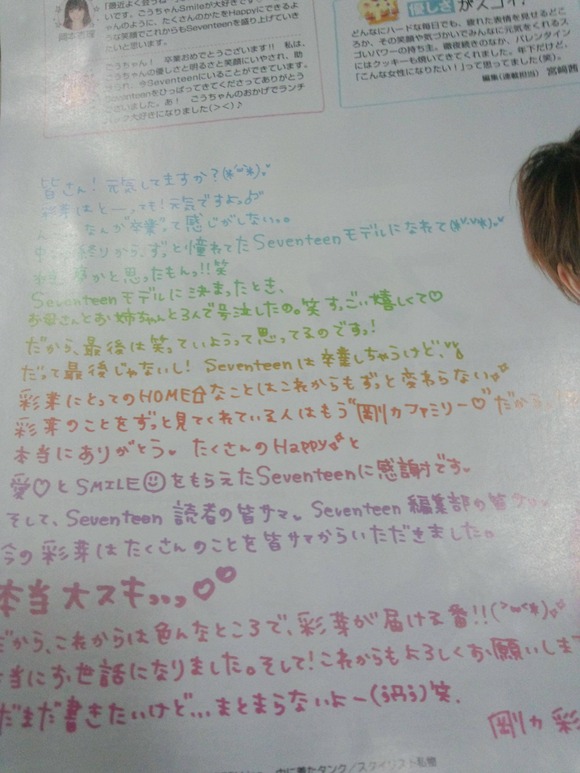 「最近よく会うね
いです。ごうちゃんSmileが大好きです
ちゃんのように、たくさんのかたをHappyにできるよ
な笑顔でこれからもSeventeenを盛り上げていき
たいと思います。
ごうちゃん！ 卒業おめでとうございます!! 私は、
ちゃんの優しさと明るさと笑顔にいやされ、助
られ、今Seventeenにいることができています。
Seventeenをひっぱってきてくださってありがとう
ございました。あ！ ごうちゃんのおかげでランチ
パック大好きになりました(＞<)♪
優しさがスゴイ！
どんなにハードな毎日でも、疲れた表情を見せるどこ
ろか、その笑顔や気づかいでみんなに元気をくれるス
ゴいパワーの持ち主。徹夜続きのなか、バレンタイン
にはクッキーも焼いてきてくれました。年下だけど、
「こんな女性になりたい！」って思ってました(笑)。
編集(連載担当) 宮﨑茜
皆さん！元気してますか？
彩芽はと―っても！元気ですよっ
なんか"卒業"って感じがしない。。
終りから、ずっと憧れてたSeventeenモデルになれて
かと思ったもんっ!!笑
Seventeenモデルに決まったとき、
お母さんとお姉ちゃんと3人で号泣したの。笑 すっごい嬉しくて♡
だから、最後は笑っていようって思ってるのですっ！
だって最後じゃないし！ Seventeenは卒業しちゃうけど、
彩芽にとってのHOMEなことはこれからもずっと変わらない
彩芽のことをずっと見てくれている人はもう"剛力ファミリー♡"だから
本当にありがとう。たくさんのHappyと
愛♡とSMILE☺をもらえたSeventeenに感謝です。
そして、Seventeen 読者の皆サマ。Seventeen 編集部の皆サマ
今の彩芽はたくさんのことを皆サマからいただきました。
本当大スキっっっ♡♡
だから、これからは色んなところで、彩芽が届ける番!!
本当にお世話になりました。そして！これからもよろしくお願いしま
まだまだ書きたいけど...まとまらないよー(う円う)笑.
剛力 彩
中に着たタンク／スタイリスト私物